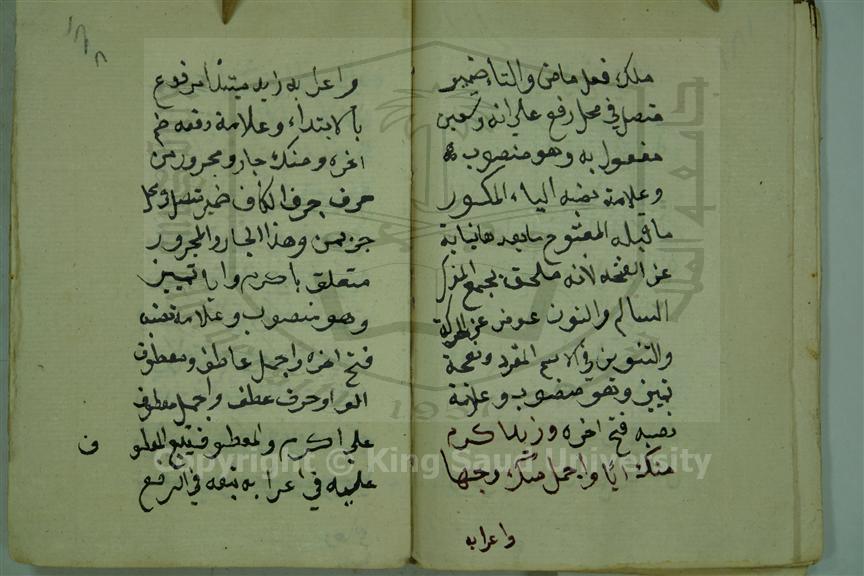 ملكت فعل ماض والتاء ضمير
متصل في محل رفع علي انه وتسعين
مفعول به وهو منصوب
وعلامة نصبه الياء المكسور
ما قبله المفتوح ما بعدها نيابة
عن الفتحه لانه ملحق بجمع المذكر
السالم والنون عوض عن الحركة
والتنوين في الاسم المفرد ونعجة
تمييز وهو منصوب وعلامة
نصبه فتح اخره وزيد اكرم
منك ابا واجمل منك وجها
واعرابه
١٣٨
واعرابه زيد مبتدأ مرفوع
بالابتداء وعلامة رفعه ضم
اخره ومنك جار ومجرور من
حرف جر والكاف ضمير متصل في محل
جر بمن وهذا الجار والمجرور
متعلق باكرم وابا تمييز
وهو منصوب وعلامة نصبه
فتح اخره واجمل عاطف ومعطوف
الواو حرف عطف واجمل معطوف
علي اكرم والمعطوف يتبع المعطو ف
عليه في اعرابه تبعه في الرفع
Copyright © King Saud University
1957